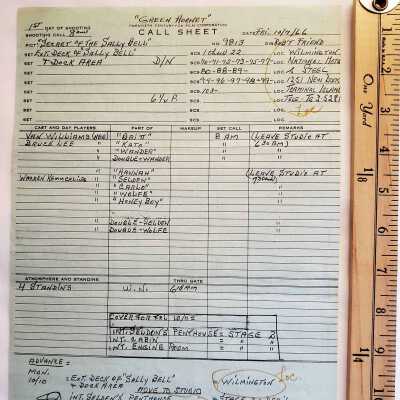 "GREEN HORNET"
TWENTIETH CENTURY-FOX FILM CORPORATION
1ST DAY OF SHOOTING
CALL SHEET
SHOOTING CALL 8AM
DATE FRI. 10/7/66
PICT "SECRET OF THE SALLY BELL" NO 9813 DIR ROB'T FRIEND
SET EXT DECK OF SALLY BELL SCS LOC WILMINGTON
SET & DOCK AREA D/N SCS 90-91-92-93-95-97 LOC NATIONAL METAL
SET SCS 80-88-89- LOC & STEEL
SET SCS LOC 1251 NEW DOCK
SET SCS 103- LOC TERMINAL ISLAND
SET SCS LOC
Loc
CAST AND DAY PLAYERS PART OF MAKEUP SET CALL REMARKS
VAN WILLIAMS (NEW) "BRITT" 8 AM (LEAVE STUDIO AT
BRUCE LEE "KATO" " 6:30 AM)
"WANDER" " "
DOUBLE-WANDER " "
"HANNAH" " (LEAVE STUDIO AT
WARREN KEMMERLING "SELDEN" "
"CARLO" " "
"WOLFE" " "
"HONEY BOY" " "
DOUBLE-SELDEN " "
DOUBLE-WOLFE " "
ATMOSPHERE AND STANDINS THRU GATE
4 STANDINS W.N. 6:18AM
COVER FOR FRI. 10/7/66
INT. SELDEN'S PENTHOUSE = STAGE 2
INT. CABIN = " "
INT. ENGINE ROOM = " "
ADVANCE =
MON. 10/10 = EXT. DECK OF "SALLY BELL" WILMINGTON Loc.
& DOCK AREA
MOVE TO STUDIO
INT. SELDEN'S PENTHOUSE
One Yard
1/8
1/4
1
2
3
4
5
6
7
8
9
10